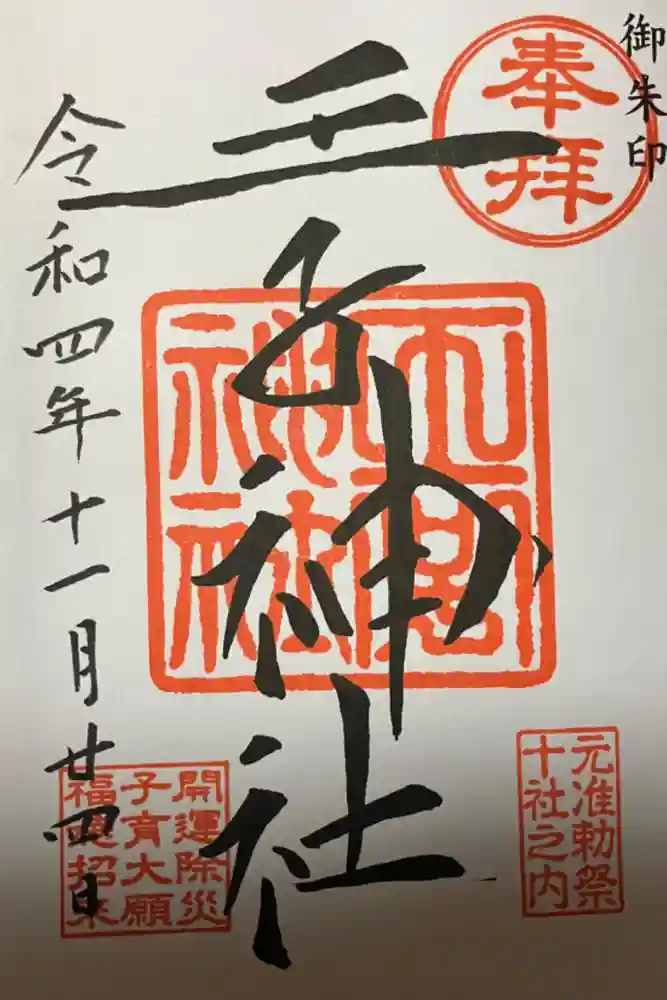 御朱印
奉拝
王子神社
令和四年十一月廿四日
元准勅祭
十社之内
開運除災
子育大願
福徳招来